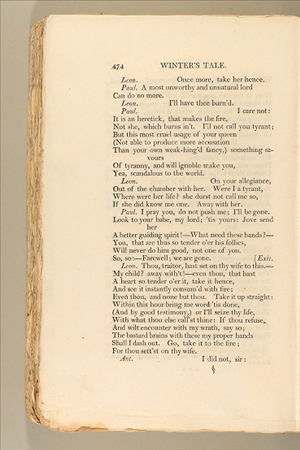 474 WINTER'S TALE.
Leon. Once more, take her hence.
Paul. A most unworthy and unnatural lord
Can do no more.
Leon. I'll have thee burn'd.
Paul. I care not:
It is an heretick, that makes the fire,
Not she, which burns in't. I'll not call you tyrant;
But this most cruel usage of your queen
(Not able to produce more accusation
Than your own weak-hing'd fancy,) something sa-
vours
Of tyranny, and will ignoble make you,
Yea, scandalous to the world.
Leon. On your allegiance,
Out of the chamber with her. Were I a tyrant,
Where were her life? she durst not call me so,
If she did know me one. Away with her.
Paul. I pray you, do not push me; I'll be gone.
Look to your babe, my lord; 'tis yours: Jove send
her
A better guiding spirit!—What need these hands?—
You, that are thus so tender o'er his follies,
Will never do him good, not one of you.
So, so:—Farewell; we are gone. [Exit.
Leon. Thou, traitor, hast set on thy wife to this.—
My child? away with't!—even thou, that hast
A heart so tender o'er it, take it hence,
And see it instantly consum'd with fire;
Even thou, and none but thou. Take it up straight:
Within this hour bring me word 'tis done,
(And by good testimony,) or I'll seize thy life,
With what thou else call'st thine: If thou refuse,
And wilt encounter with my wrath, say so;
The bastard brains with these my proper hands
Shall I dash out. Go, take it to the fire;
For thou sett'st on thy wife.
Ant. I did not, sir: